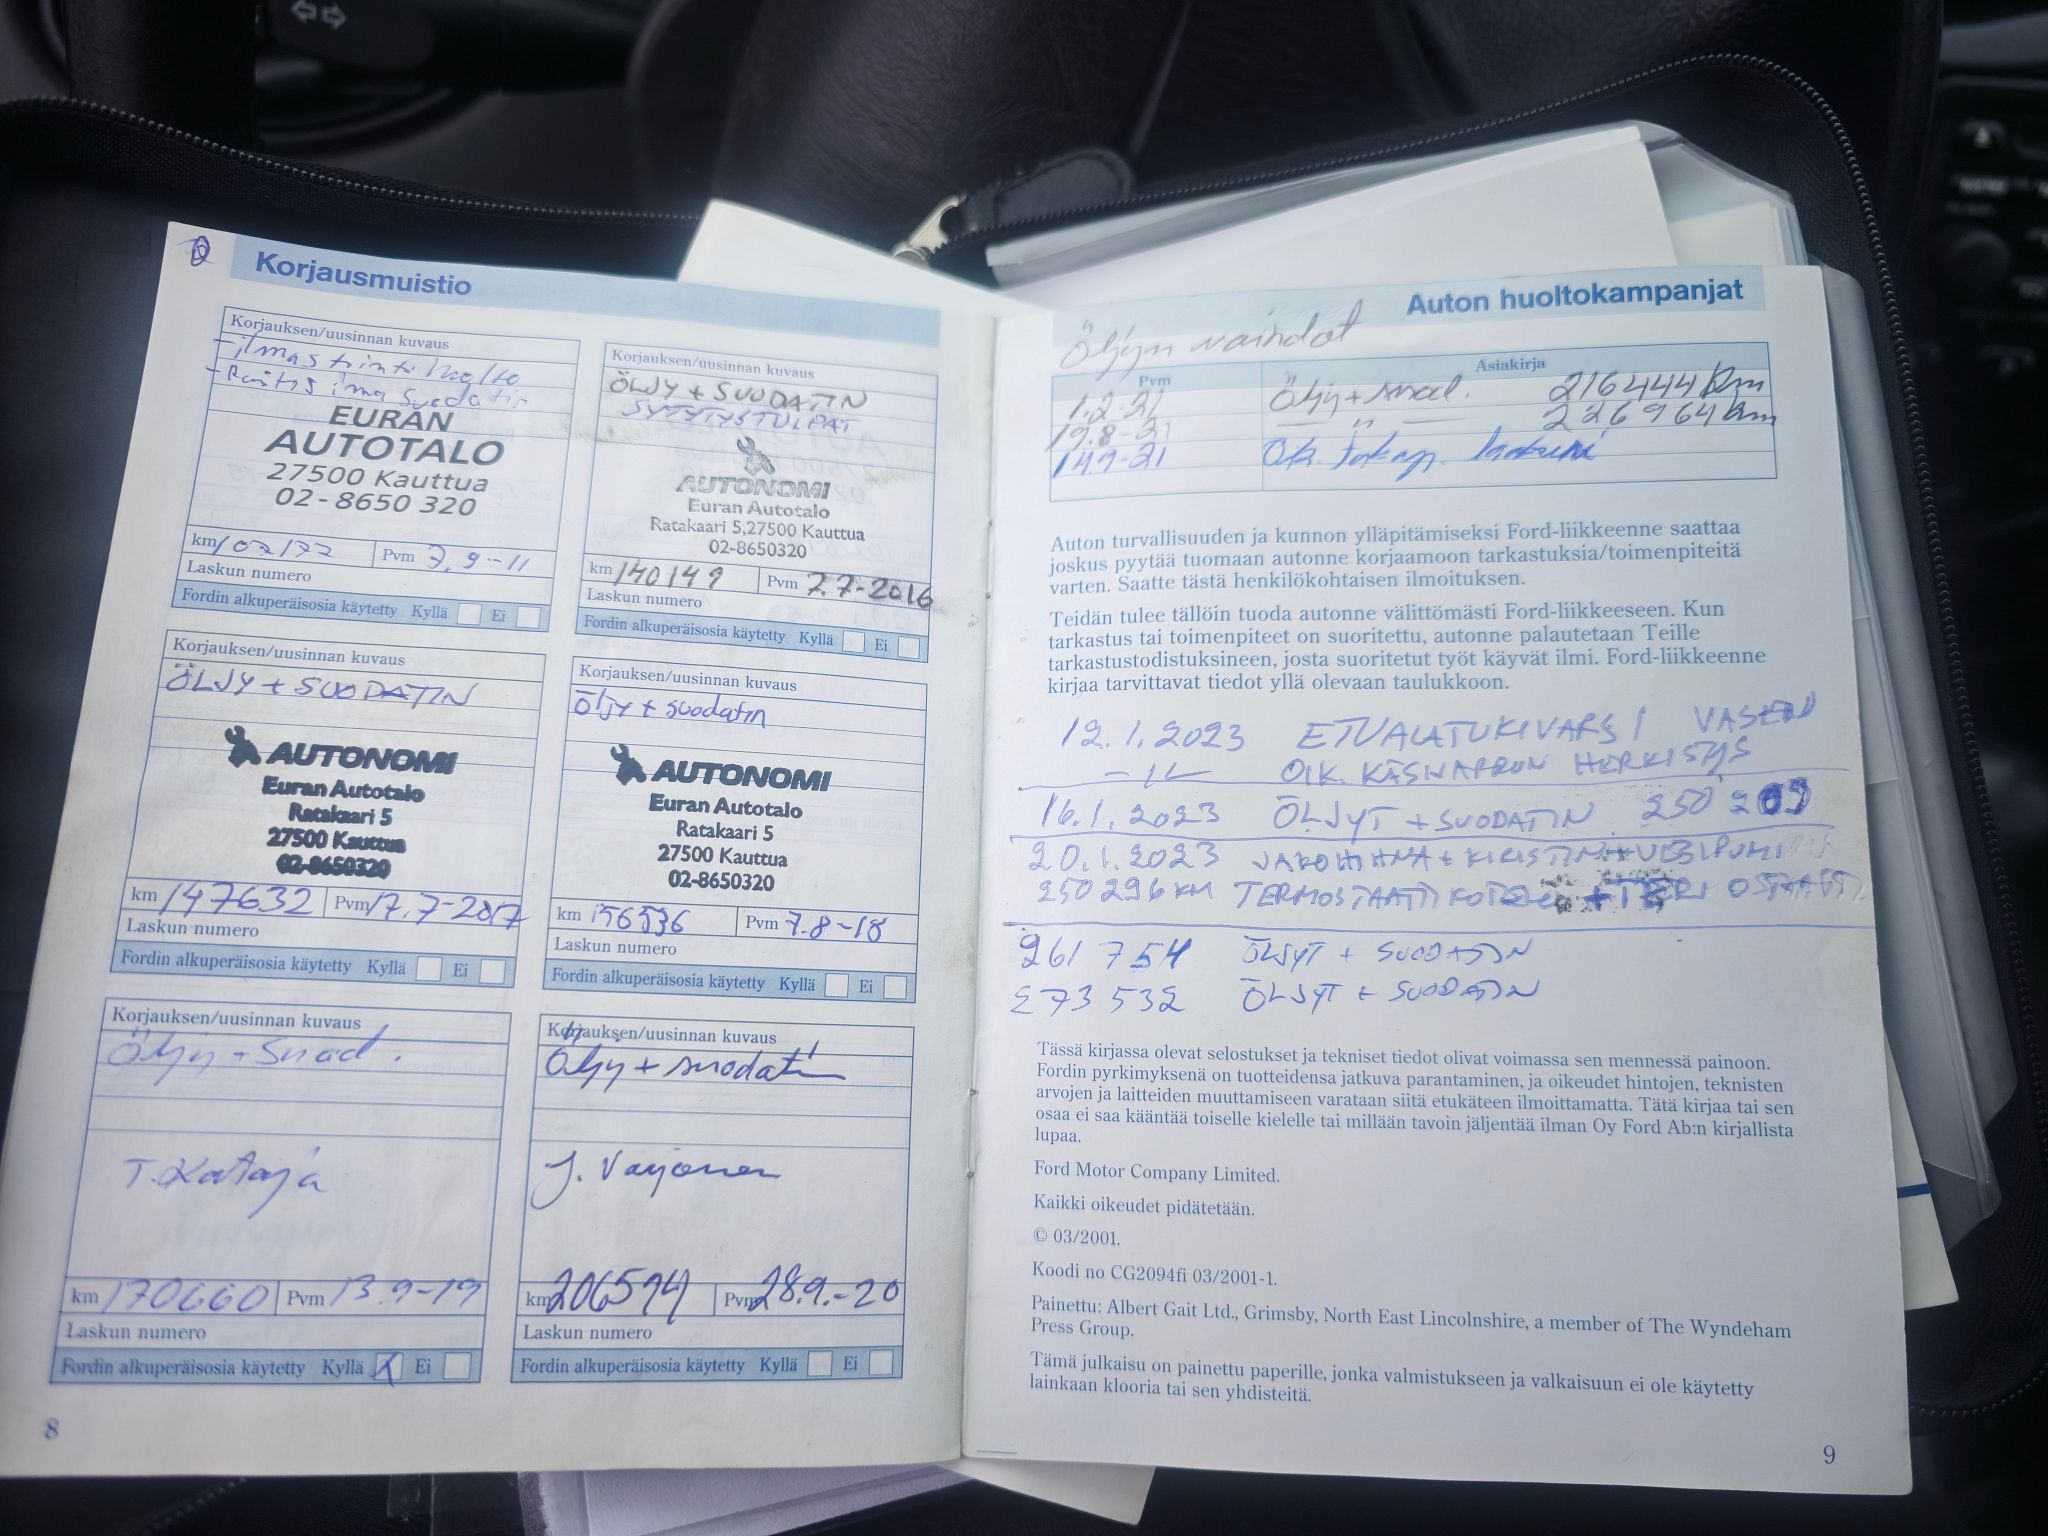 Korjausmuistio
Korjauksen/uusinnan kuvaus
-ilmastointihuolto
-Raitis ilmasuodatin
EURAN
AUTOTALO
27500 Kauttua
02-8650 320
km 107177 Pvm 7.9-11
Laskun numero
Fordin alkuperäisosia käytetty Kyllä Ei
Korjauksen/uusinnan kuvaus
ÖLJY + SUODATIN
SYTYTYSTULPAT
AUTONOMI
Euran Autotalo
Ratakaari 5,27500 Kauttua
02-8650320
km 140149 Pvm 7.7-2016
Laskun numero
Fordin alkuperäisosia käytetty Kyllä Ei
Korjauksen/uusinnan kuvaus
ÖLJY + SUODATIN
AUTONOMI
Euran Autotalo
Ratakaari 5
27500 Kauttua
02-8650320
km 147632 Pvm 17.7-2017
Laskun numero
Fordin alkuperäisosia käytetty Kyllä Ei
Korjauksen/uusinnan kuvaus
öljy + suodatin
AUTONOMI
Euran Autotalo
Ratakaari 5
27500 Kauttua
02-8650320
km 156536 Pvm 7.8-18
Laskun numero
Fordin alkuperäisosia käytetty Kyllä Ei
Korjauksen/uusinnan kuvaus
Öljy + suod.
T. Kataja
km 170660 Pvm 13.9-19
Laskun numero
Fordin alkuperäisosia käytetty Kyllä X Ei
Korjauksen/uusinnan kuvaus
Öljy + suodatin
J. Varjonen
km 206594 Pvm 28.9.-20
Laskun numero
Fordin alkuperäisosia käytetty Kyllä Ei
8
Auton huoltokampanjat
Öljyn vaihdot
Pvm Asiakirja
1.2-21 Öljy + suod. 216444 km
19.8-21 — " — 226964 km
14.9-21 Oik. takap. laakeri
Auton turvallisuuden ja kunnon ylläpitämiseksi Ford-liikkeenne saattaa
joskus pyytää tuomaan autonne korjaamoon tarkastuksia/toimenpiteitä
varten. Saatte tästä henkilökohtaisen ilmoituksen.
Teidän tulee tällöin tuoda autonne välittömästi Ford-liikkeeseen. Kun
tarkastus tai toimenpiteet on suoritettu, autonne palautetaan Teille
tarkastustodistuksineen, josta suoritetut työt käyvät ilmi. Ford-liikkeenne
kirjaa tarvittavat tiedot yllä olevaan taulukkoon.
12.1.2023 ETUALATUKIVARSI VASEN
-"- OIK. KÄSIJARRUN HERKISTYS
16.1.2023 ÖLJYT + SUODATIN 250 209
20.1.2023 JAKOHIHNA + KIRISTIN + VESIPUMPPU
250 296 KM TERMOSTAATTIKOTELO
261 754 ÖLJYT + SUODATIN
273 532 ÖLJYT + SUODATIN
Tässä kirjassa olevat selostukset ja tekniset tiedot olivat voimassa sen mennessä painoon.
Fordin pyrkimyksenä on tuotteidensa jatkuva parantaminen, ja oikeudet hintojen, teknisten
arvojen ja laitteiden muuttamiseen varataan siitä etukäteen ilmoittamatta. Tätä kirjaa tai sen
osaa ei saa kääntää toiselle kielelle tai millään tavoin jäljentää ilman Oy Ford Ab:n kirjallista
lupaa.
Ford Motor Company Limited.
Kaikki oikeudet pidätetään.
© 03/2001.
Koodi no CG2094fi 03/2001-1.
Painettu: Albert Gait Ltd., Grimsby, North East Lincolnshire, a member of The Wyndeham
Press Group.
Tämä julkaisu on painettu paperille, jonka valmistukseen ja valkaisuun ei ole käytetty
lainkaan klooria tai sen yhdisteitä.
9